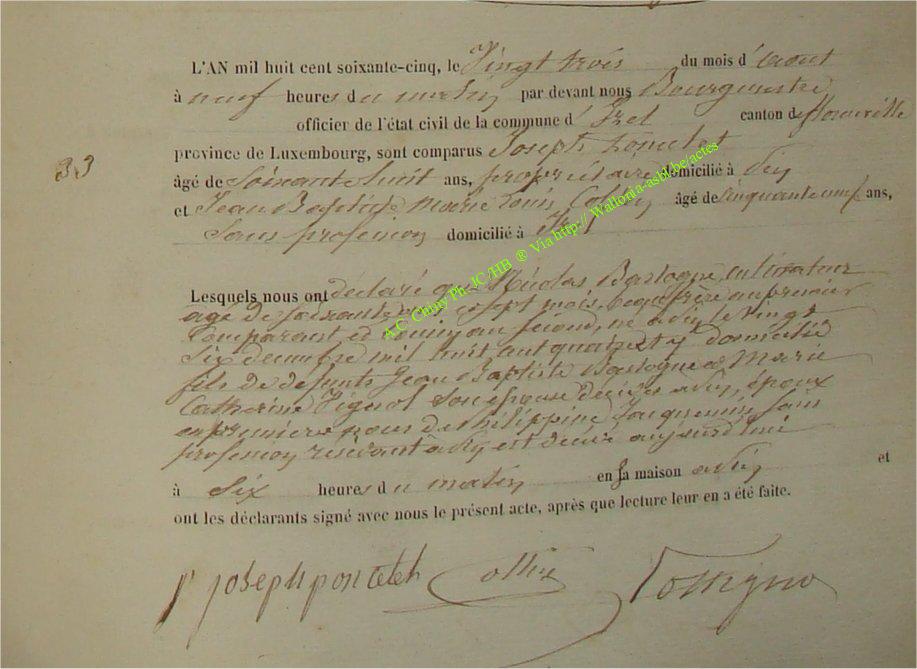 L'AN mil huit cent soixante-cinq, le Vingt trois du mois d'aout
à neuf heures du matin par devant nous Bourgmestre
officier de l'état civil de la commune d'Izel canton de florenville
33
province de Luxembourg, sont comparus Joseph
âgé de Soixante huit ans, propriétaire domicilié à
et Jean Baptiste Marie Louis Collin âgé de cinquante neuf ans,
Sans profession domicilié à Izel
Lesquels nous ont déclaré que Nicolas Barlogne, cultivateur
agé de Soixante ans, sept mois, beaufrère au premier
Comparant, et au Second, né le Vingt
Six décembre mil huit cent quatre et y domicilié
fils de défunts Jean Baptiste Barlogne & Marie
Catherine Tignol Son épouse décédés époux
en premières noces de Philippine Jacquemin Sans
profession est décédé aujourd'hui
à Six heures du matin en sa maison et
ont les déclarants signé avec nous le présent acte, après que lecture leur en a été faite.
joseph poncelet Collin
A.C. Chiny Ph. JC/HB ® Via http://Wallonia-asbl.be/actes